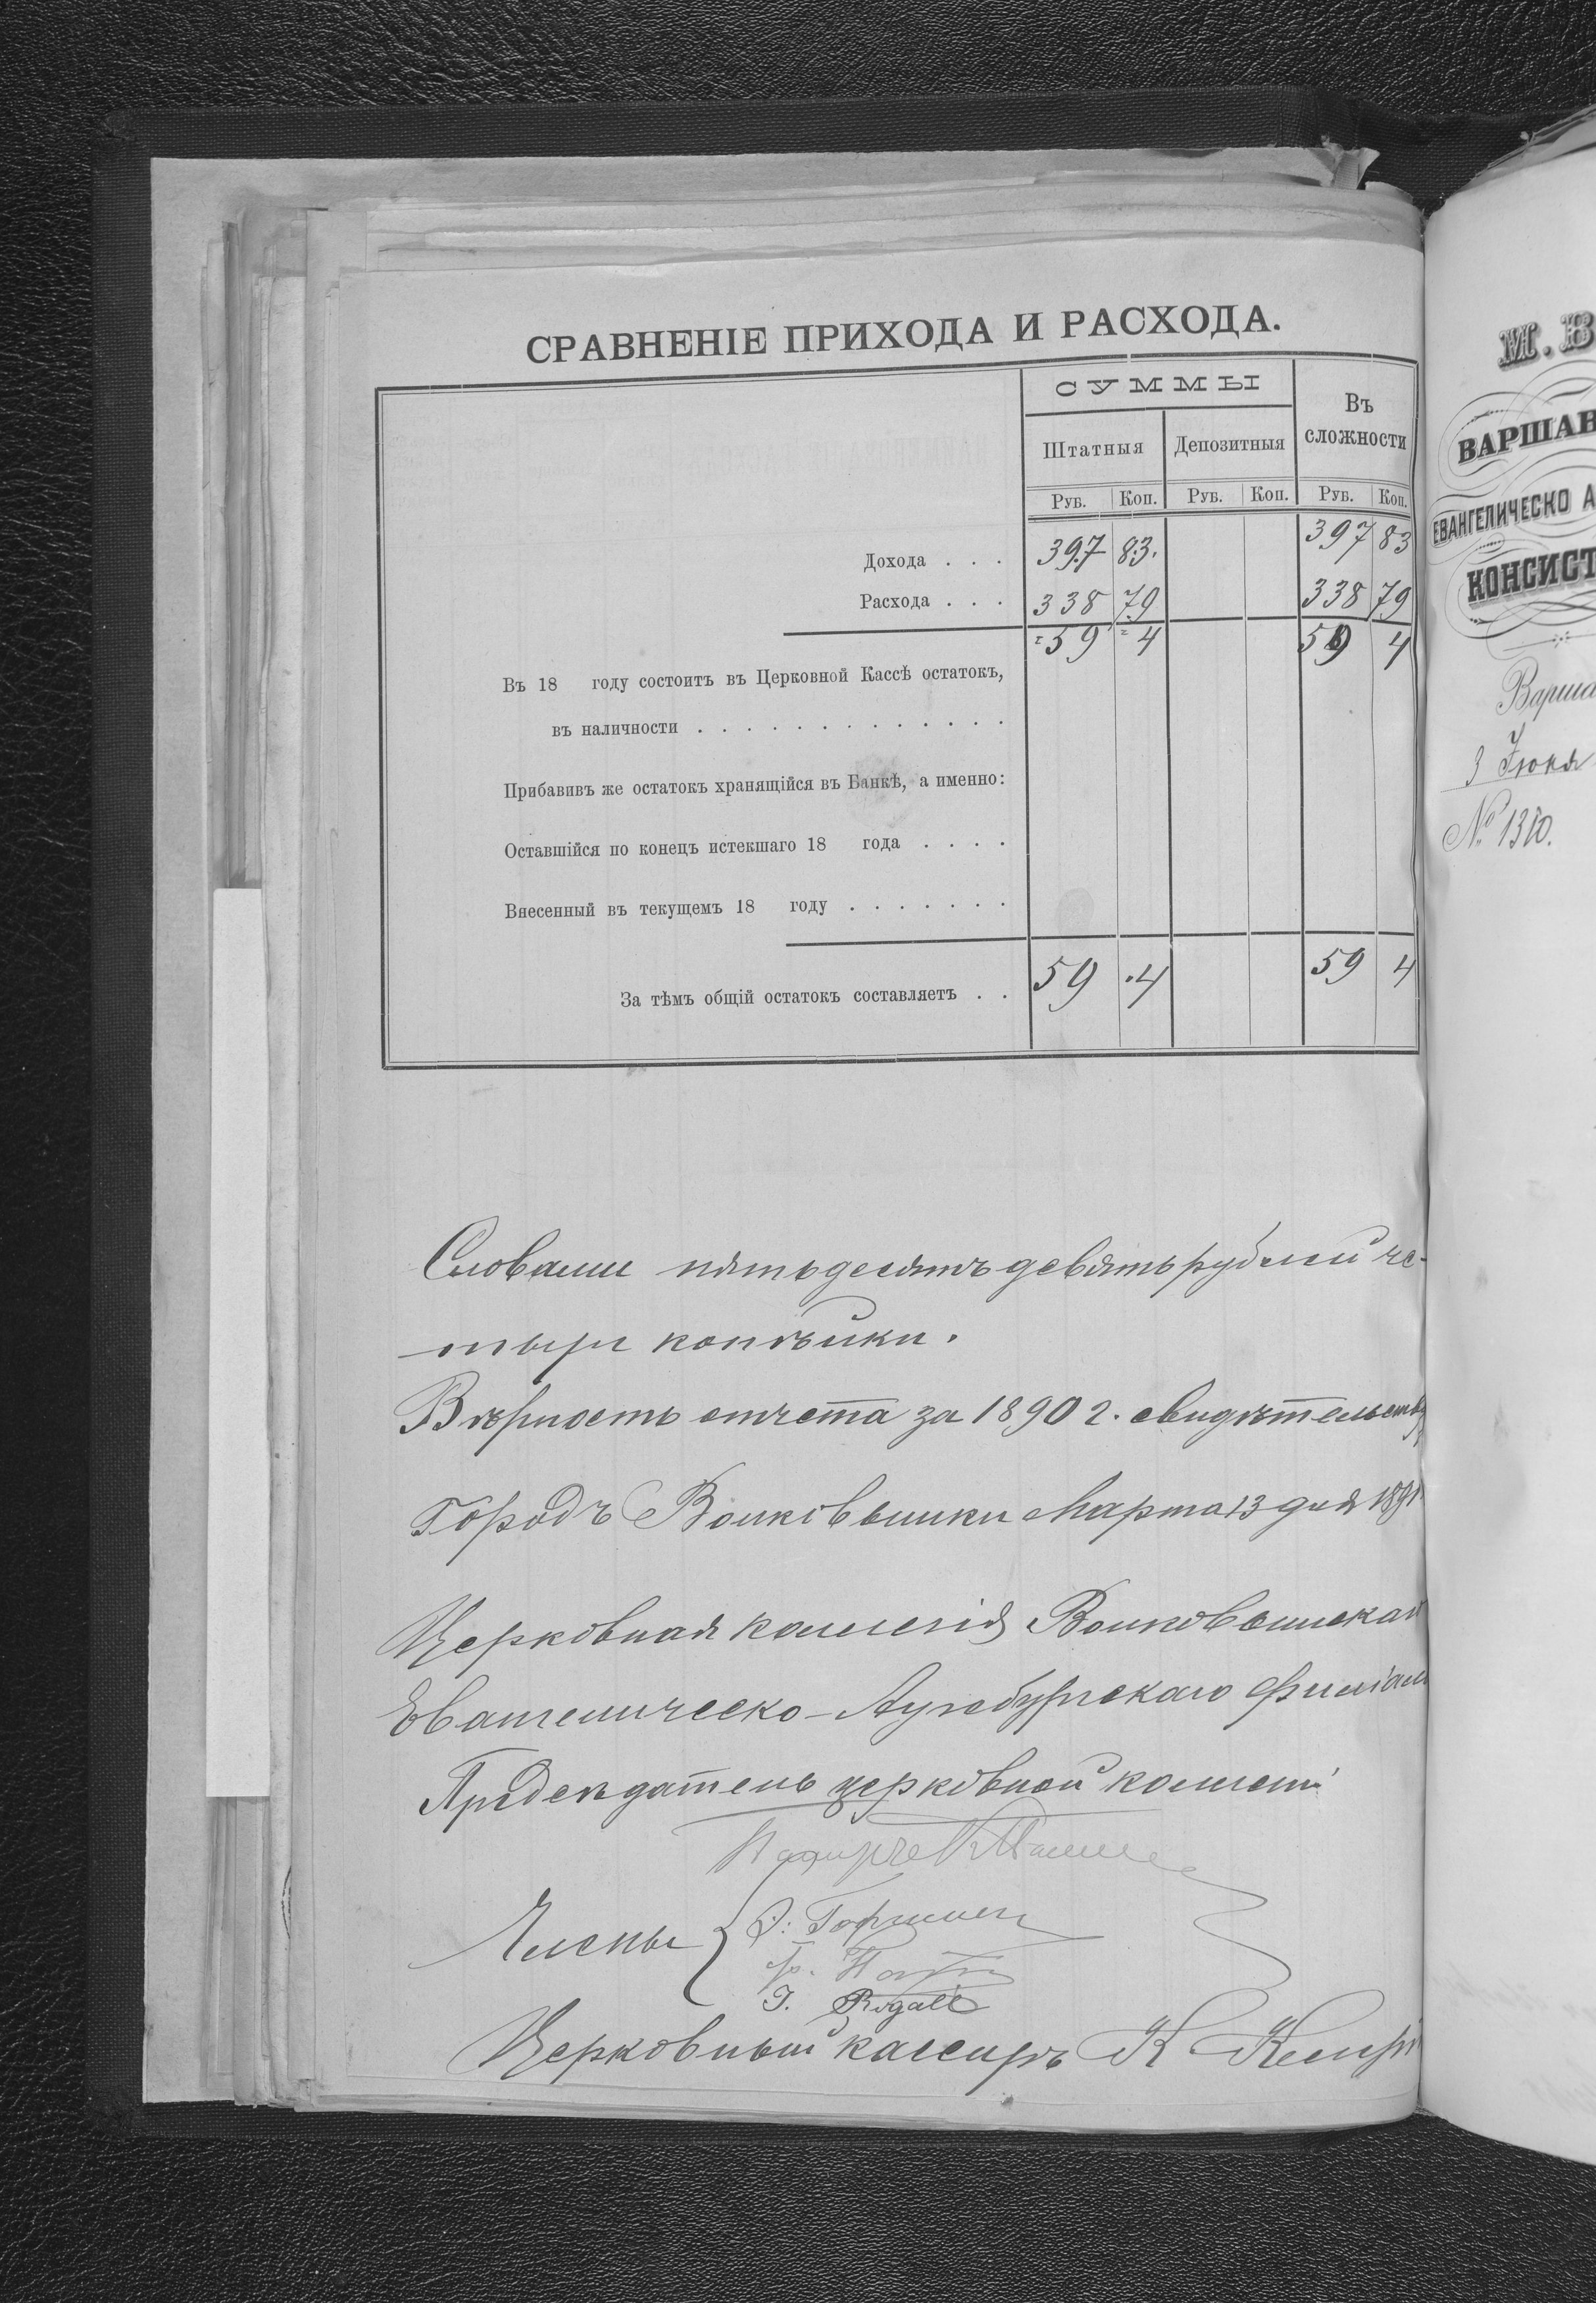 СРАВНЕНІЕ ПРИХОДА И РАСХОДА.
СУММЫ
Въ сложности
Штатныя Депозитныя
Руб. Коп. Руб. Коп. Руб. Коп.
Дохода . . . 397 83. 397 83
Расхода . . . 338 79 338 79
59 4 59 4
Въ 18 году состоитъ въ Церковной Кассѣ остатокъ,
въ наличности . . . . . . . . . . . . .
Прибавивъ же остатокъ хранящійся въ Банкѣ, а именно:
Оставшійся по конецъ истекшаго 18 года . . . .
Внесенный въ текущемъ 18 году . . . . . . .
За тѣмъ общій остатокъ составляетъ . . 59 4 59 4
Словами пятьдесятъ девять рублей че-
тыри копѣйки.
Вѣрность отчета за 1890 г. свидѣтельству
Городъ Волковышки Марта 13 дня 1891
Церковная коллегія Волковышская
Евангелическо-Аугсбургскаго Филіал
Предсѣдатель церковной коллегіи
Члены
I. Rogall
Церковный кассиръ К
М. В
ВАРШАВ
ЕВАНГЕЛИЧЕСКО А
КОНСИСТ
Варша
3 Іюня
№ 1380.